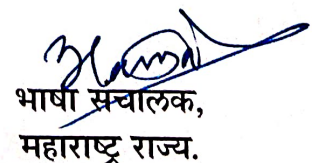 भाषा संचालक,
महाराष्ट्र राज्य.